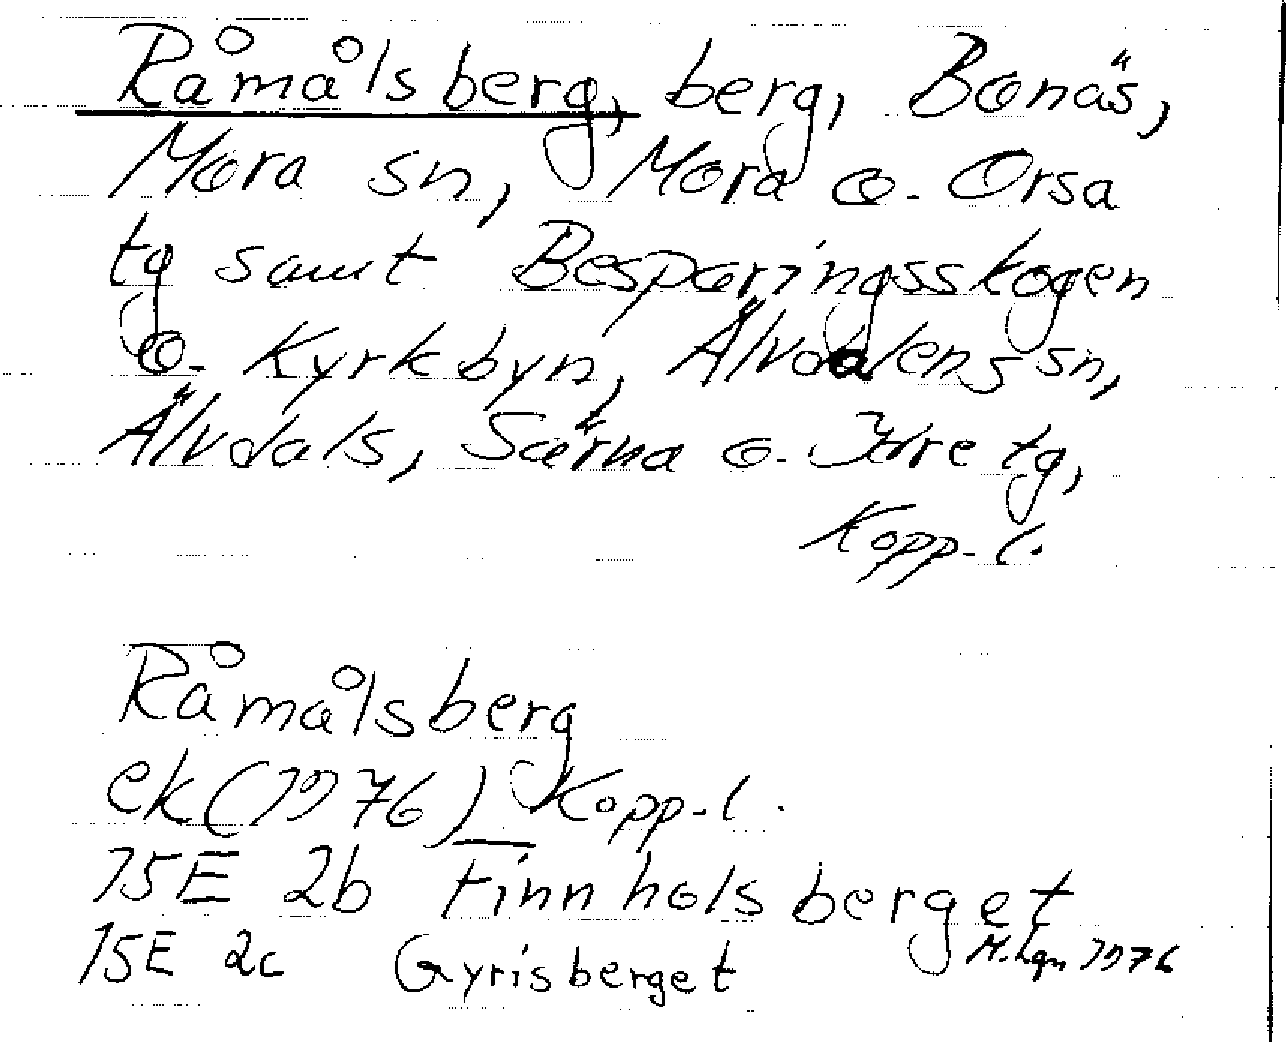 Råmålsberg, berg, Bonäs,
Mora sn, Mora o. Orsa
tg samt Besparingsskogen
o. Kyrkbyn, Älvdalens sn,
Älvdals, Särna o. Idre tg,
Kopp. l.
Råmålsberg
ek (1976) Kopp. l.
15E 2b Finnholsberget
15E 2c Gyrisberget
M. Lgn 1976